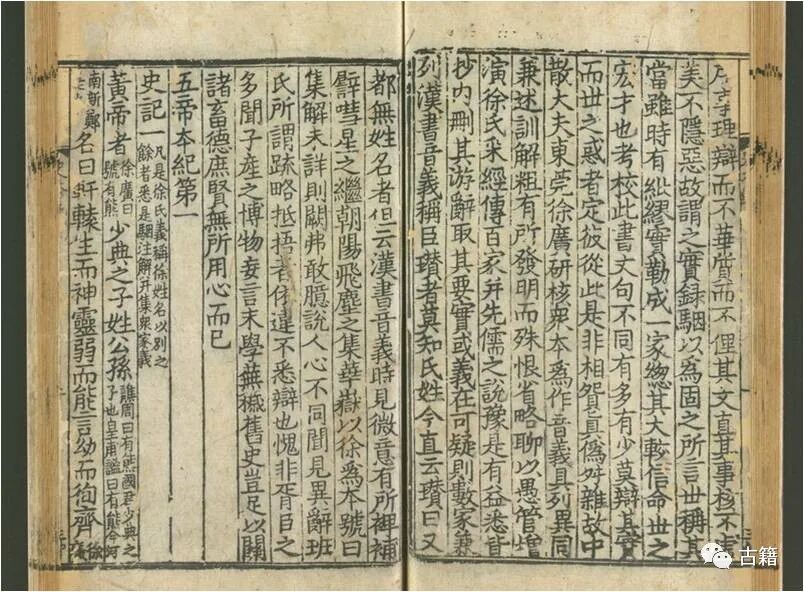 序事理辯而不華質而不俚其文直其事核不虛
美不隱惡故謂之實録駰以爲固之所言世稱其
當雖時有紕繆實勒成一家緫其大較信命世之
宏才也考校此書文句不同有多有少莫辯其實
而世之惑者定彼從此是非相貿真僞舛雜故中
散大夫東莞徐廣研核衆本爲作音義具列異同
兼述訓解粗有所發明而殊恨省略聊以愚管增
演徐氏采經傳百家并先儒之說豫是有益悉皆
抄内刪其游辭取其要實或義在可疑則數家兼
列漢書音義稱臣瓚者莫知氏姓今直云瓚曰又
都無姓名者但云漢書音義時見微意有所裨補
譬嘒星之繼朝陽飛塵之集華嶽以徐爲本號曰
集解未詳則闕弗敢臆說人心不同聞見異辭班
氏所謂疏略抵捂者依違不悉辯也愧非胥臣之
多聞子產之博物妄言末學蕪穢舊史豈足以關
諸畜德庶賢無所用心而已
五帝本紀第一
史記一 凡是徐氏義稱徐姓名以别之餘者悉是駰注解并集衆家義
黃帝者 徐廣曰號有熊 少典之子姓公孫 譙周曰有熊國君少典之子也皇甫謐曰有熊今河
南新鄭 名曰軒轅生而神靈弱而能言幼而徇齊 徐廣
古籍